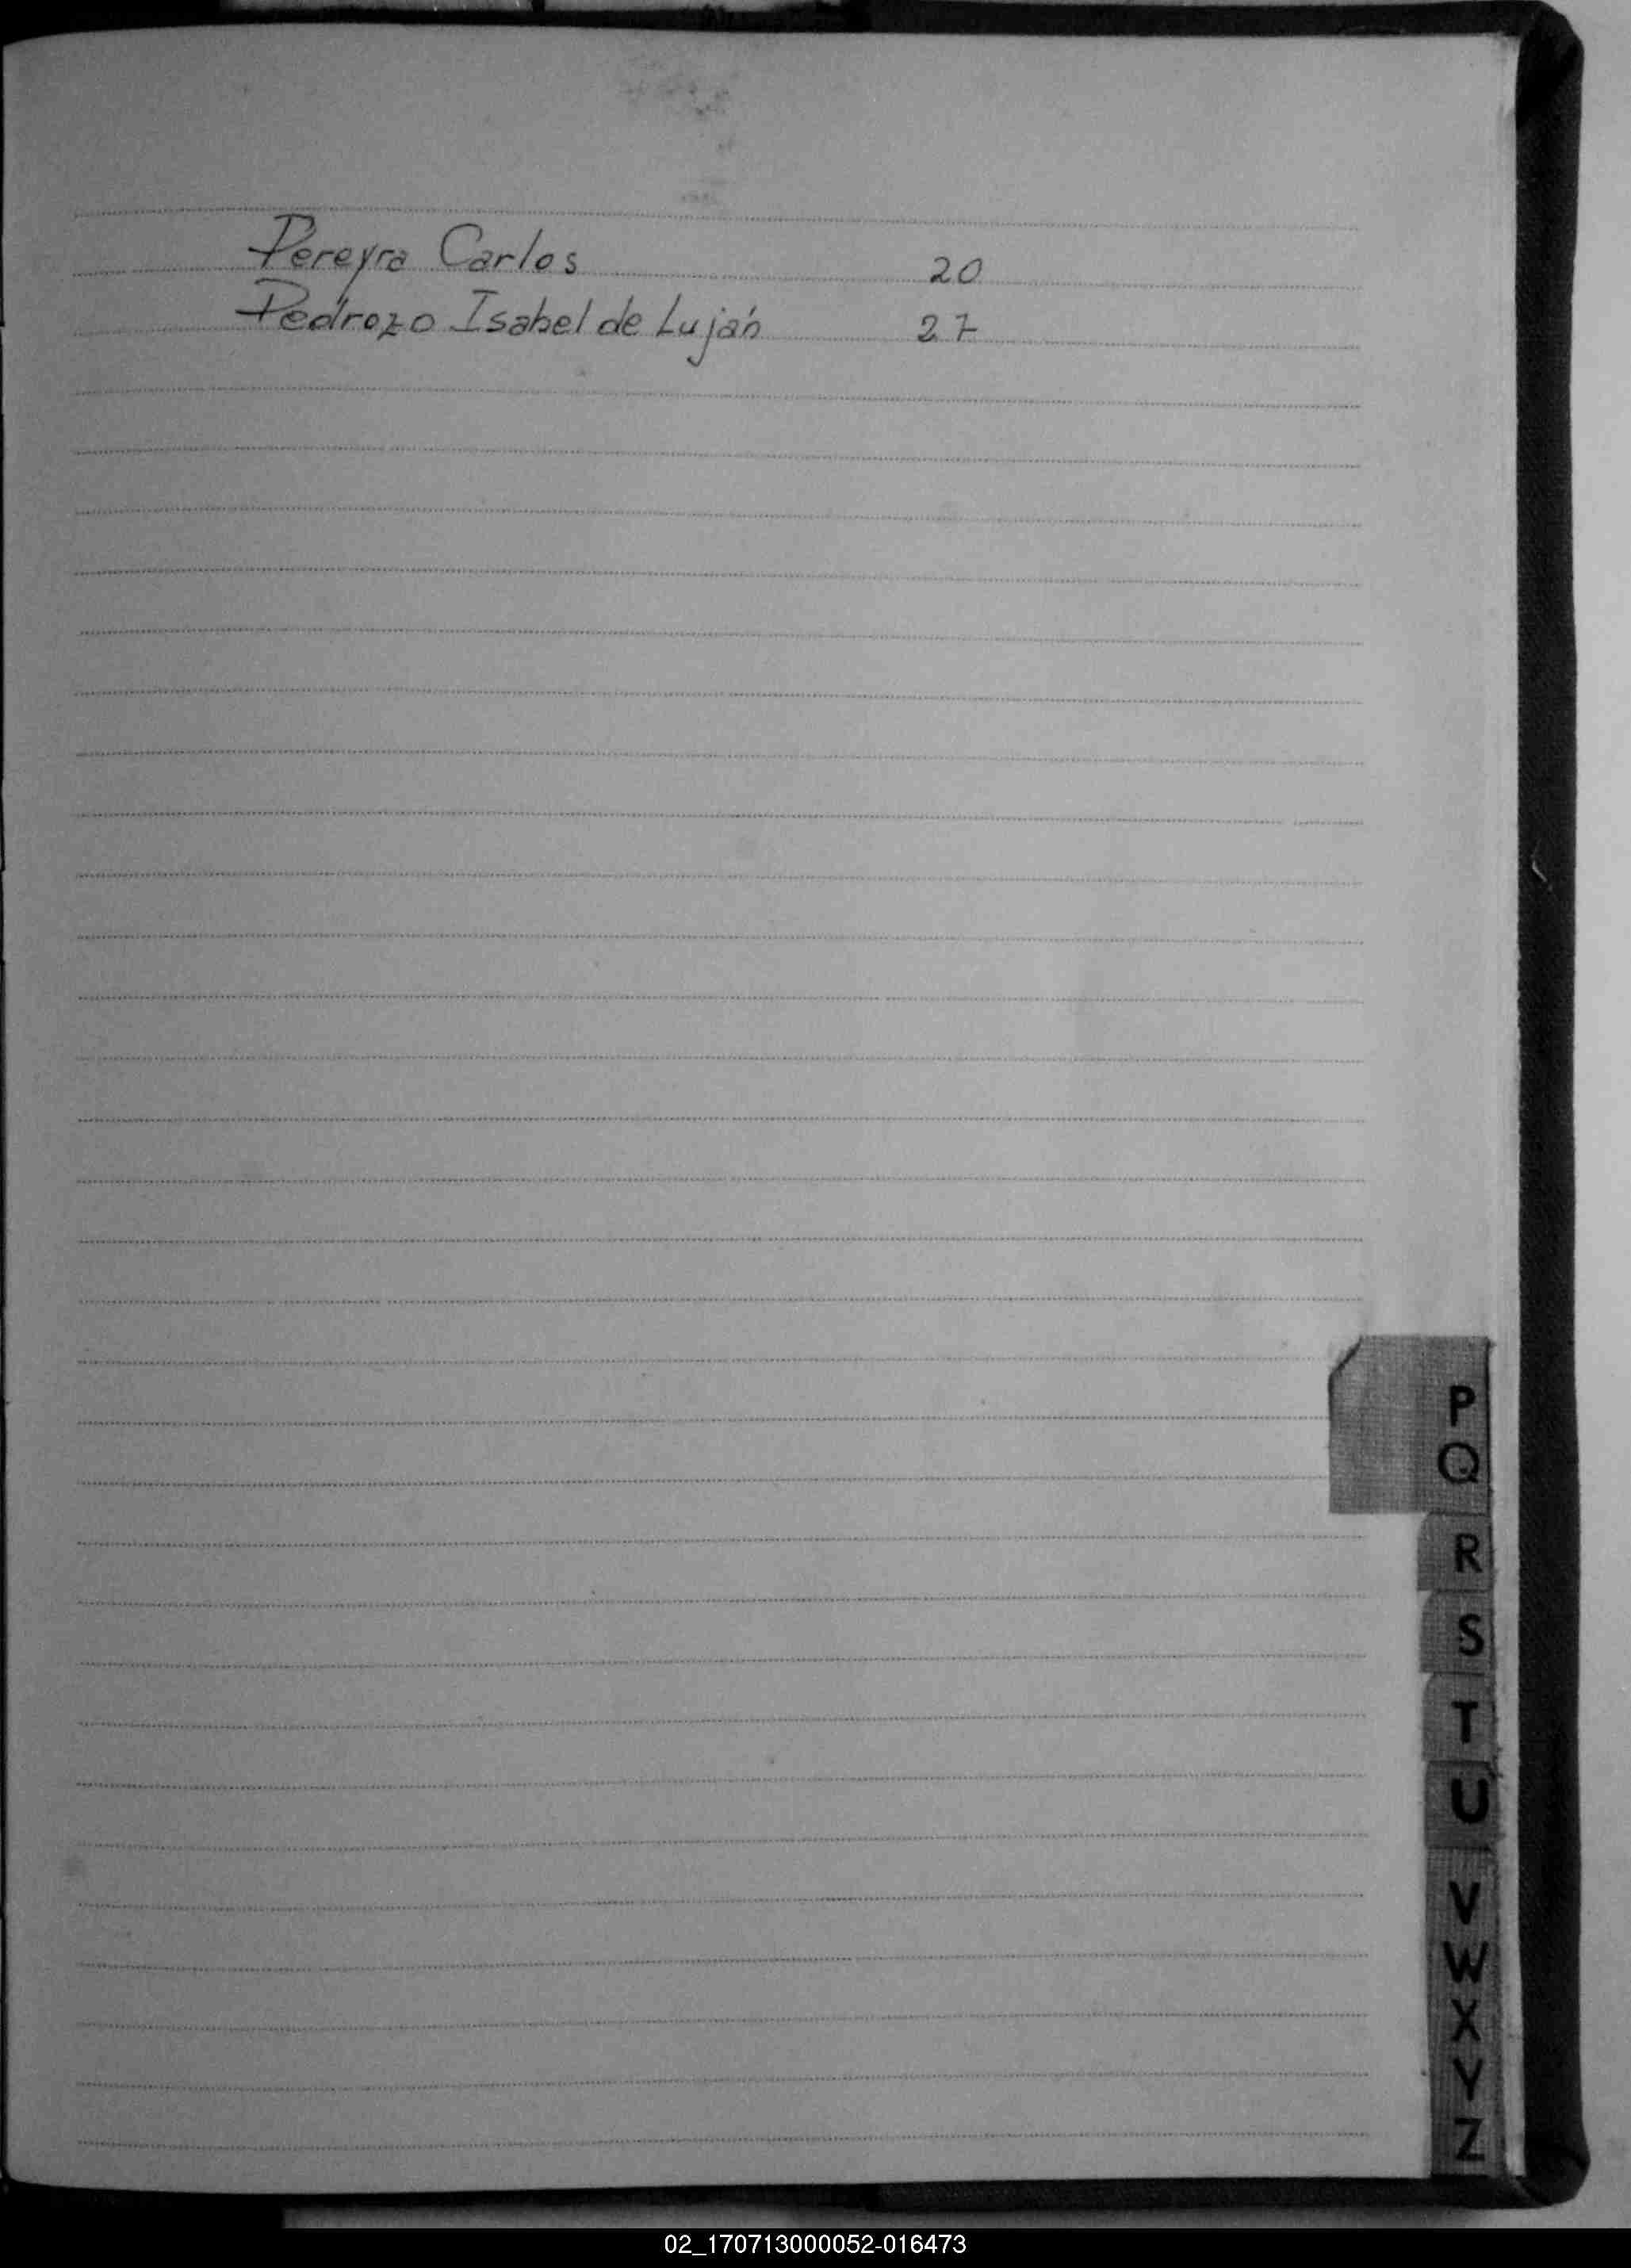 Pereyra Carlos 20
Pedrozo Isabel de Luján 27
P
Q
R
S
T
U
V
W
X
Y
Z
02_170713000052-016473